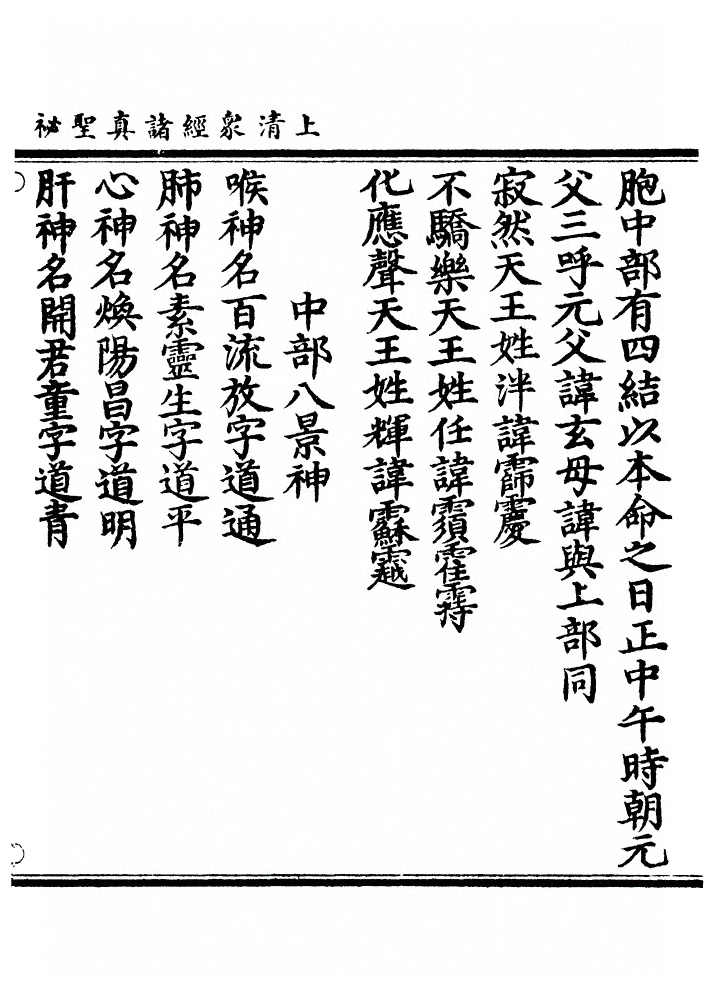 上清衆經諸真聖祕
胞中部有四結以本命之日正中午時朝元
父三呼元父諱玄母諱與上部同
寂然天王姓泮諱
不驕樂天王姓任諱
化應聲天王姓輝諱
中部八景神
喉神名百流放字道通
肺神名素靈生字道平
心神名煥陽昌字道明
肝神名開君童字道青